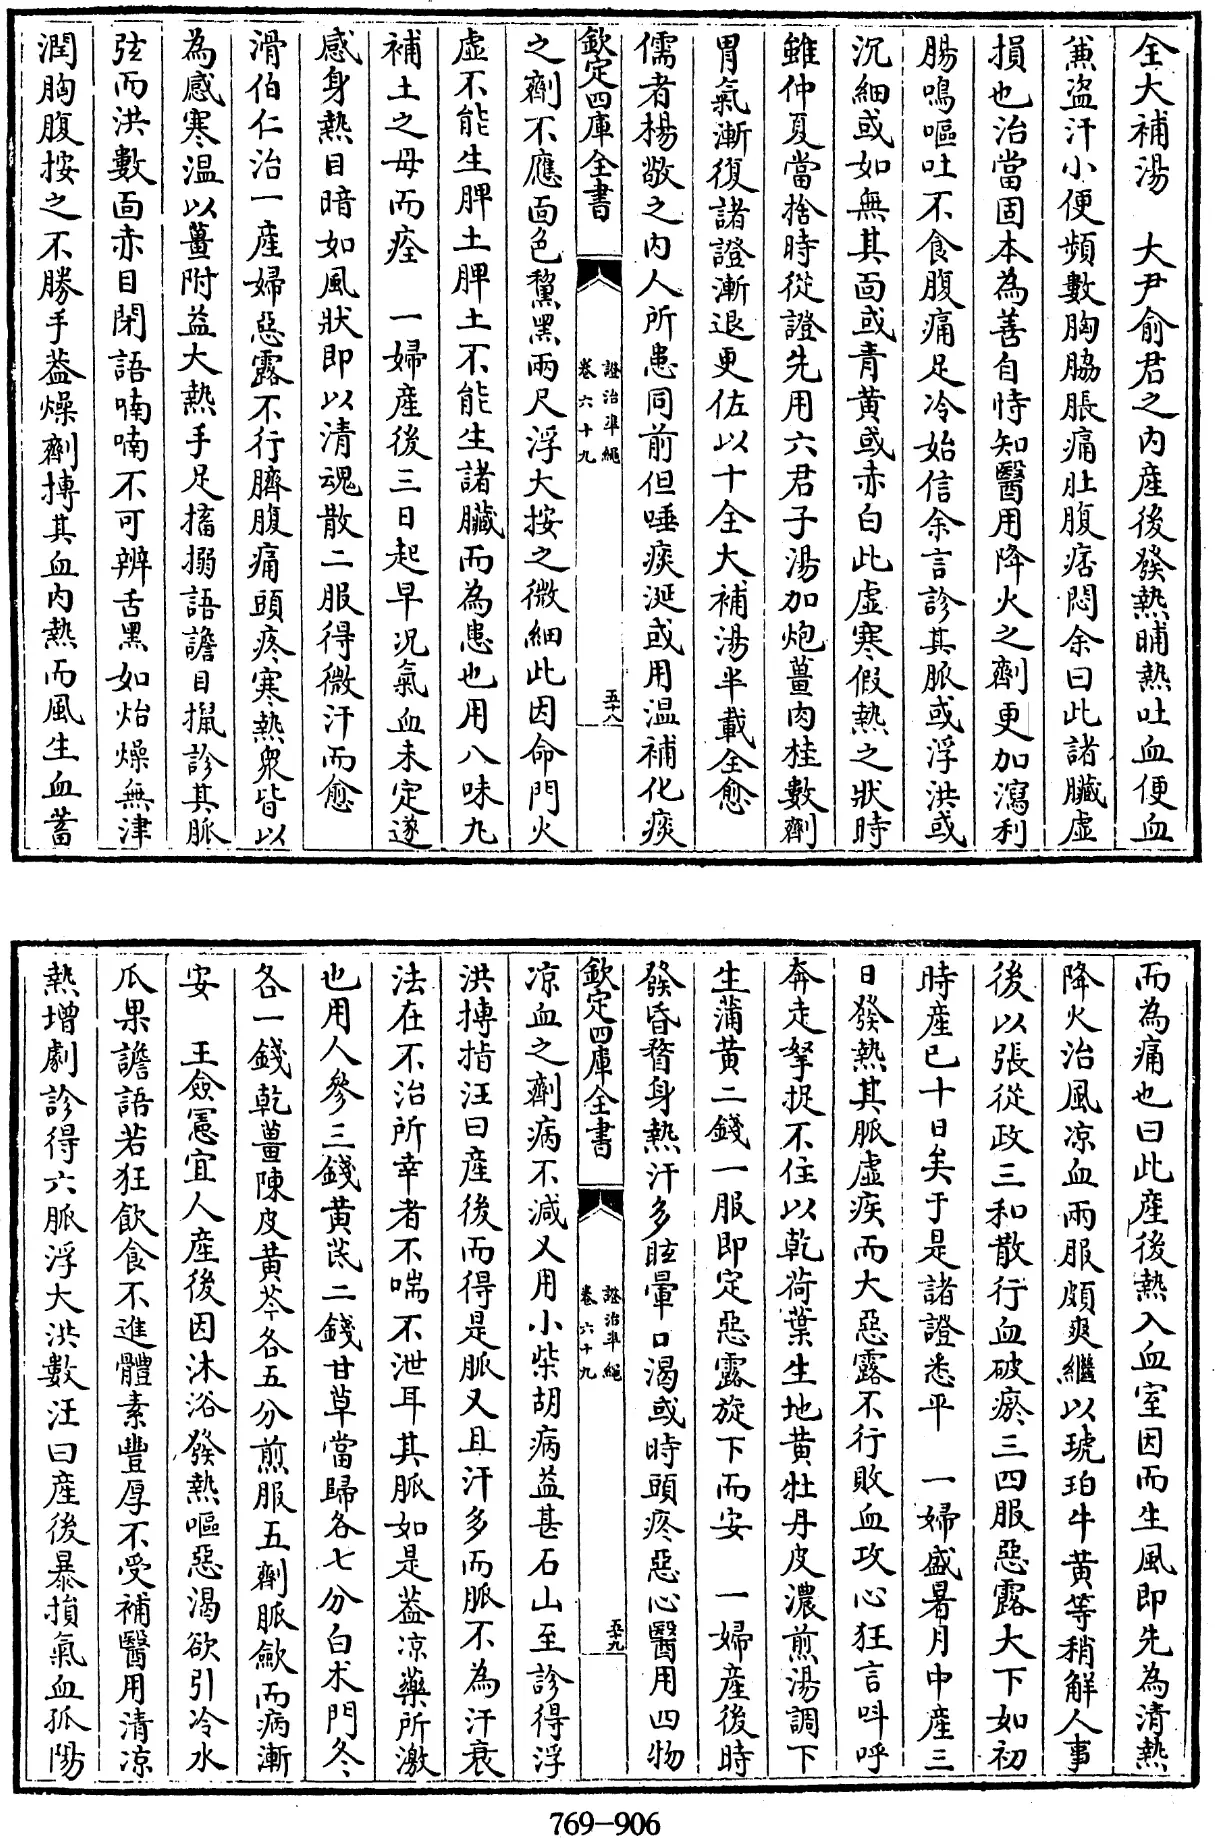 全大補湯　大尹俞君之内産後發熱晡熱吐血便血
兼盗汗小便頻數胸脇脹痛肚腹痞悶余曰此諸臓虚
損也治當固本為善自恃知醫用降火之劑更加瀉利
腸鳴嘔吐不食腹痛足冷始信余言診其脈或浮洪或
沉細或如無其面或青黄或赤白此虚寒假熱之狀時
雖仲夏當捨時從證先用六君子湯加炮薑肉桂數劑
胃氣漸復諸證漸退更佐以十全大補湯半載全愈
儒者楊敬之内人所患同前但唾痰涎或用温補化痰
欽定四庫全書
證治凖繩
卷六十九
五十八
之劑不應面色黧黑兩尺浮大按之微細此因命門火
虚不能生脾土脾土不能生諸臓而為患也用八味丸
補土之母而痊　一婦産後三日起早况氣血未定遂
感身熱目暗如風狀即以清魂散二服得微汗而愈
滑伯仁治一産婦惡露不行臍腹痛頭疼寒熱衆皆以
為感寒温以薑附益大熱手足搐搦語譫目攛診其脈
弦而洪數面赤目閉語喃喃不可辨舌黑如炲燥無津
潤胸腹按之不勝手葢燥劑搏其血内熱而風生血蓄
而為痛也曰此産後熱入血室因而生風即先為清熱
降火治風凉血兩服頗爽繼以琥珀牛黄等稍解人事
後以張從政三和散行血破瘀三四服惡露大下如初
時産已十日矣于是諸證悉平　一婦盛暑月中産三
日發熱其脈虚疾而大惡露不行敗血攻心狂言呌呼
奔走拏捉不住以乾荷葉生地黄牡丹皮濃煎湯調下
生蒲黄二錢一服即定惡露旋下而安　一婦産後時
發昏瞀身熱汗多眩暈口渴或時頭疼惡心醫用四物
欽定四庫全書
證治凖繩
卷六十九
五十九
凉血之劑病不減又用小柴胡病益甚石山至診得浮
洪搏指汪曰産後而得是脈又且汗多而脈不為汗衰
法在不治所幸者不喘不泄耳其脈如是葢凉藥所激
也用人參三錢黄芪二錢甘草當歸各七分白术門冬
各一錢乾薑陳皮黄芩各五分煎服五劑脈歛而病漸
安　王僉憲宜人産後因沐浴發熱嘔惡渴欲引冷水
瓜果譫語若狂飲食不進體素豐厚不受補醫用清凉
熱增劇診得六脈浮大洪數汪曰産後暴損氣血孤陽
769-906